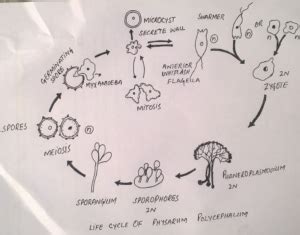 MICROCYST
SECRETE WALL
SWARMER
OR
n
n
n
n
GERMINATING
SPORE
MYXAMOEBA
ANTERIOR
WHIPLASH
FLAGELLA
MITOSIS
2N
ZYGOTE
SPORES
n
MEIOSIS
PHANEROPLASMODIUM
2N
SPORANGIUM
SPOROPHORES
2N
LIFE CYCLE OF PHYSARUM POLYCEPHALUM